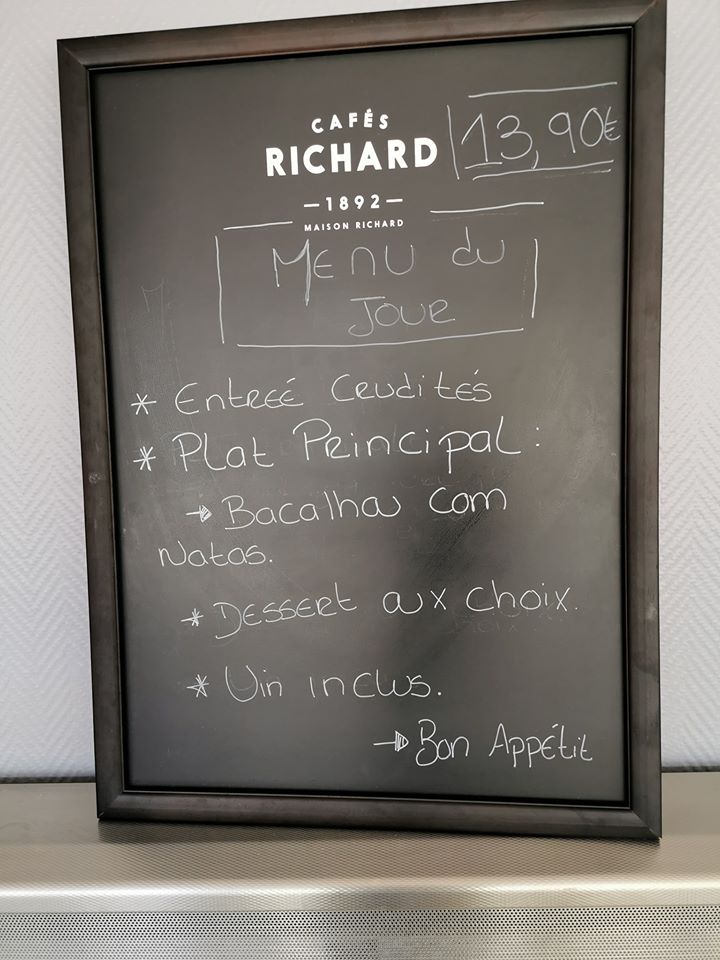 CAFÉS
RICHARD
13,90€
—1892—
MAISON RICHARD
MENU du
JOUR
* Entreé Crudités
* Plat Principal:
→ Bacalhau com
Natas.
* Dessert aux choix.
* Vin inclus.
→ Bon Appétit